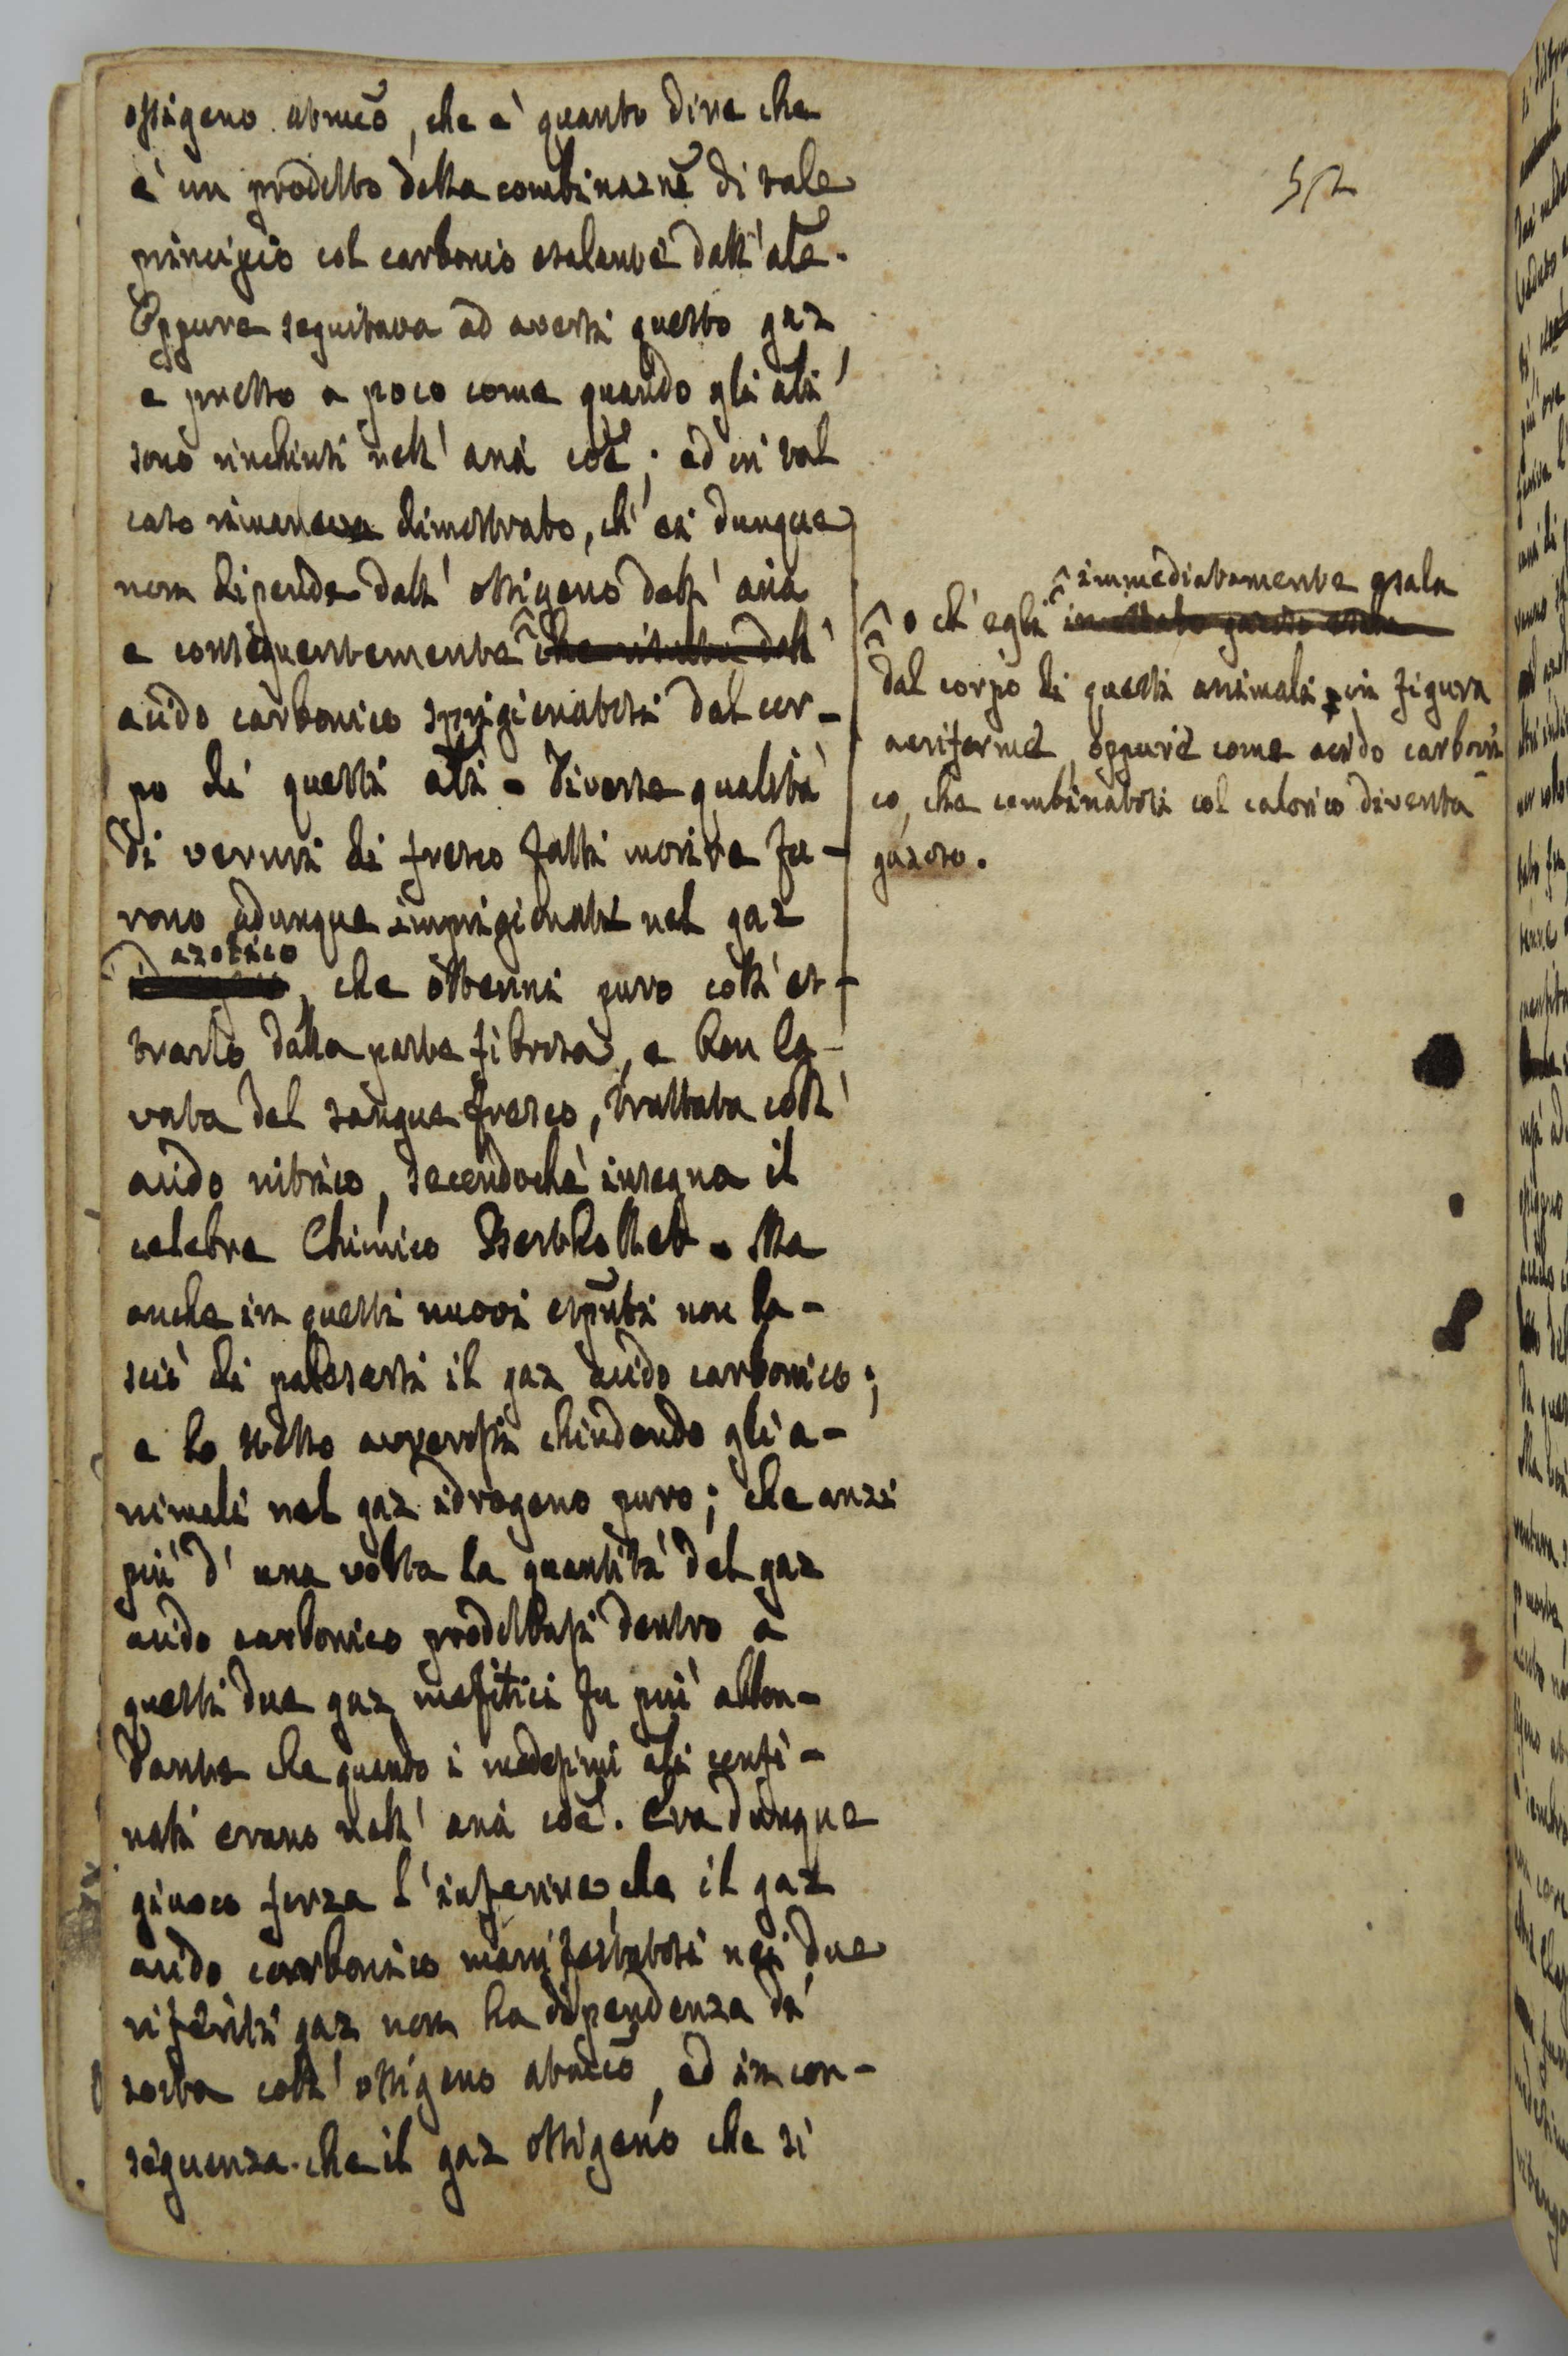 ossigeno atmcõ, che è quanto dire che
è un prodotto della combinaznẽ di tale
principio col carbonio esalante dall'alẽ.
Eppure seguitava ad aversi questo gaz
e presso a poco come quando gli ali
sono rinchiusi nell'aria coẽ; ed in tal
caso rimaneva dimostrato, ch'ei dunque
non dipende dall'ossigeno dell'aria
e conseguentemente che risulta dall'
acido carbonico sprigionatosi dal cor-
po di questi ali. Diverse qualità
di vermi di fresco fatti morire fu-
rono adunque imprigionati nel gaz
azotico
, che ottenni puro coll'es-
trarlo dalla parte fibrosa, e ben la-
vata del sangue fresco, trattata coll'
acido nitrico, secondochè insegna il
celebre Chimico Berthollet. Ma
anche in questi nuovi esputi non la-
sciò di palesarsi il gaz acido carbonico;
e lo stesso avverossi chiudendo gli a-
nimali nel gaz idrogeno puro; che anzi
più d'una volta la quantità del gaz
acido carbonico prodottasi dentro a
questi due gaz mefitici fu più abbon-
dante che quando i medesimi ali confi-
nati erano nell'aria coẽ. Era dunque
giuoco forza l'inferire, che il gaz
acido carbonico manifestatosi nei due
riferiti gaz non ha dipendenza di
sorta coll'ossigeno atmcõ, ed in con-
seguenza che il gaz ossigeno che si
52
immediatamente esala
o ch'egli in istato gazoso esala
dal corpo di questi animali in figura
aeriforme, oppure come acido carboni
co, che combinatosi col calorico diventa
gazoso.